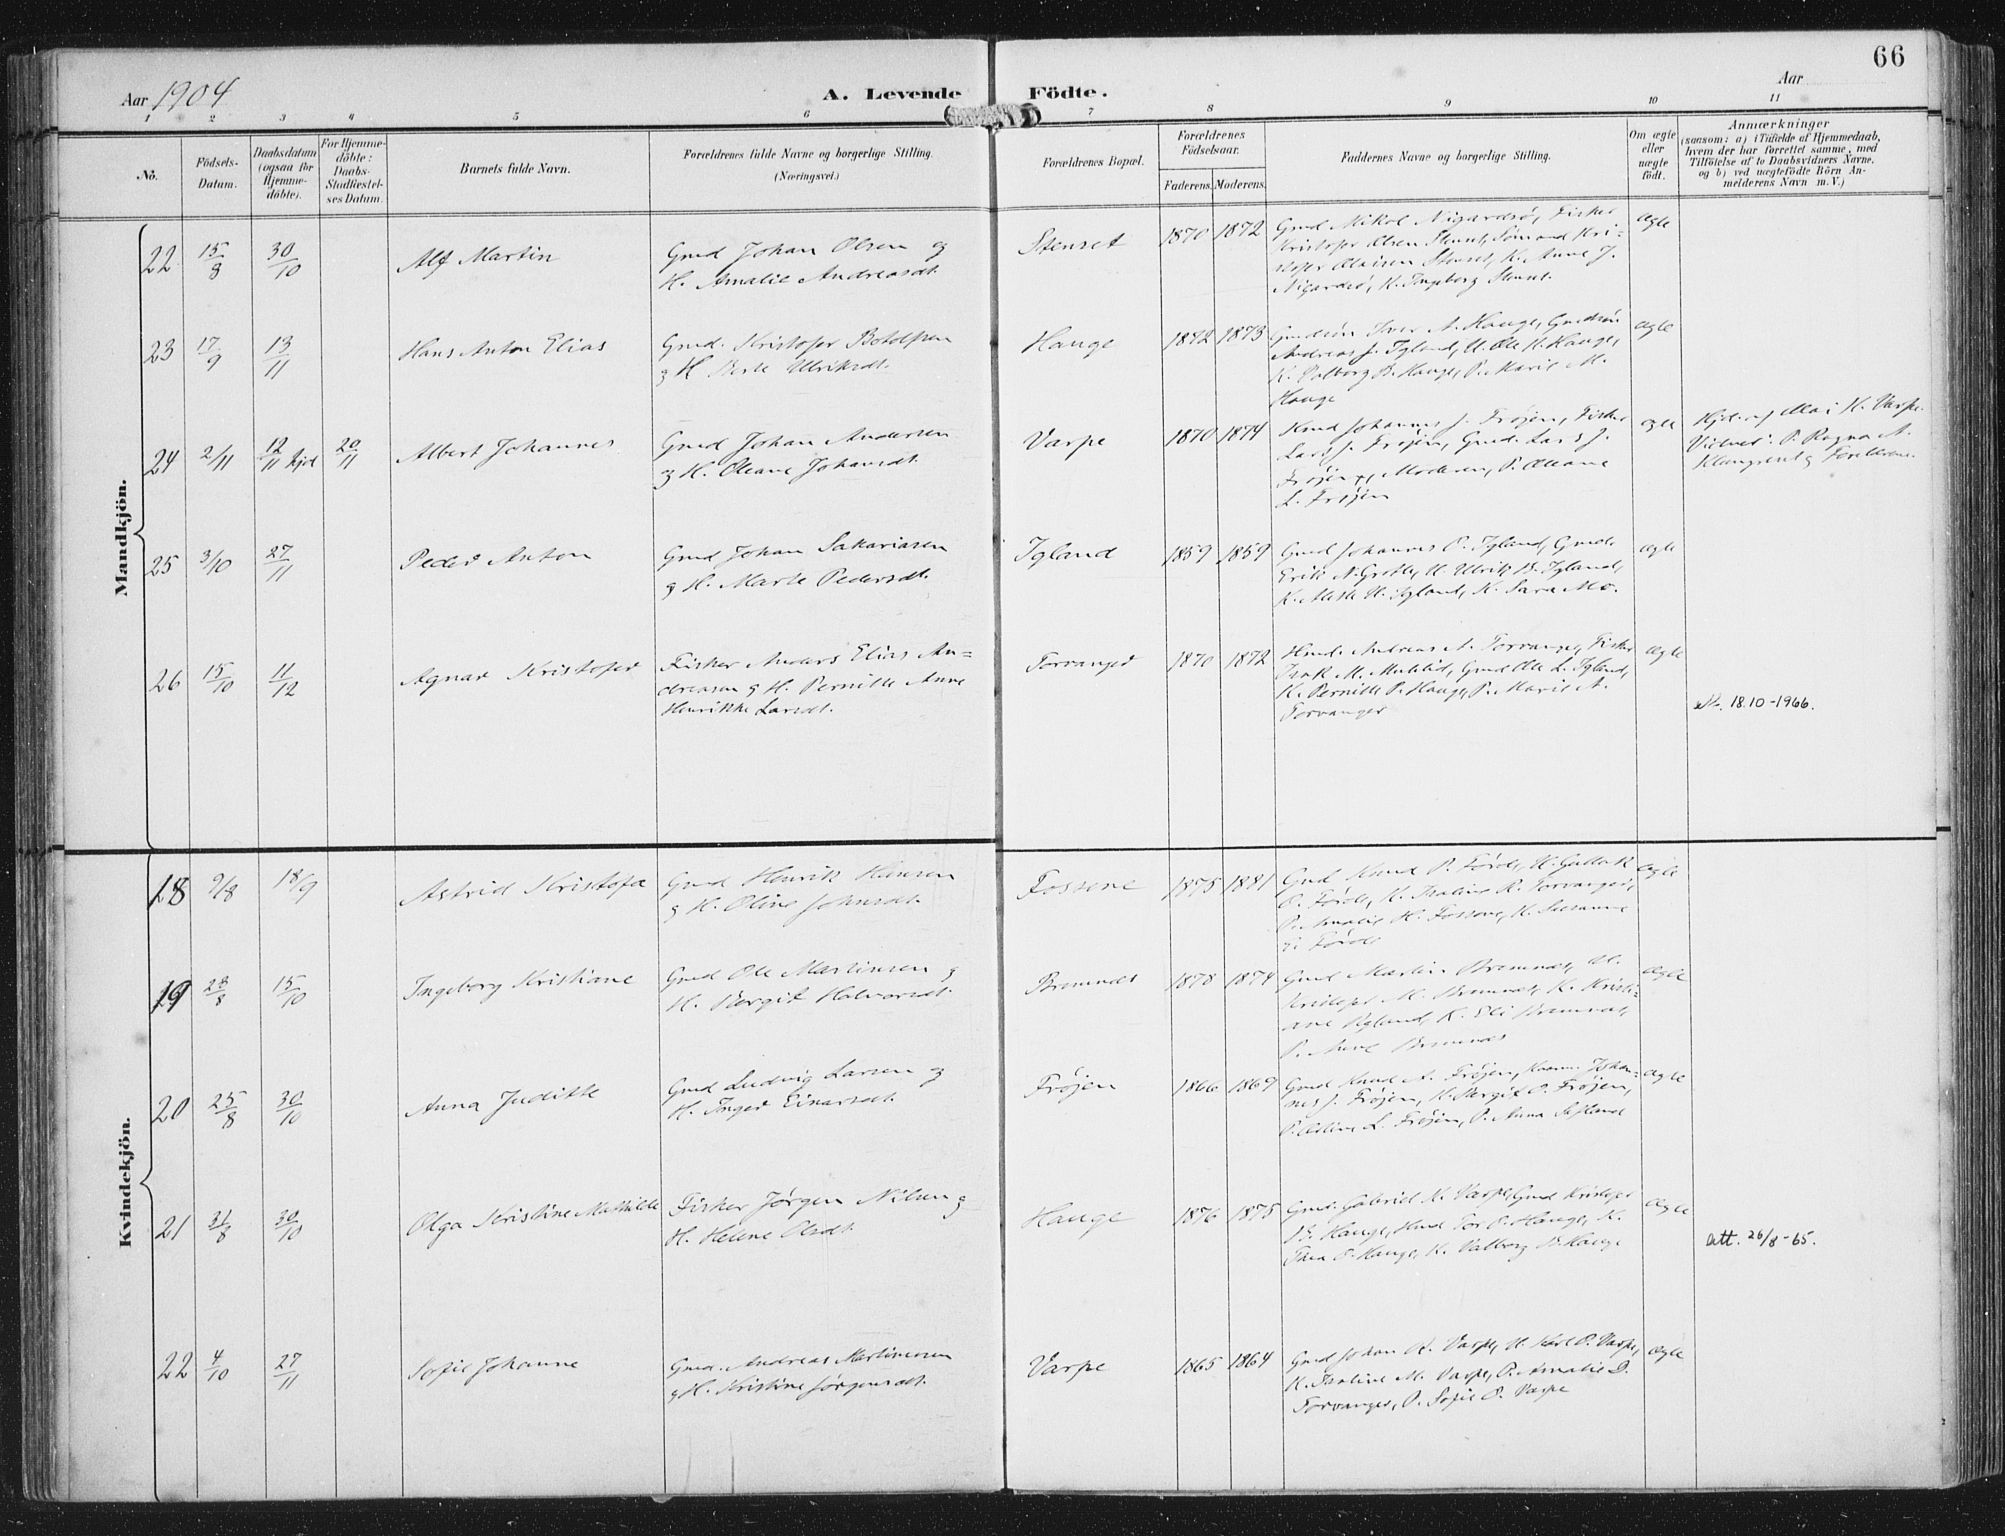 66
Aar 1904
A. Levende Födte.
Aar
1 2 3 4 5 6 7 8 9 10 11
No.
Födsels-
Datum.
Daabsdatum
(ogsaa for
Hjemme-
döbte).
For Hjemme-
döbte:
Daabs-
Stadfæstel-
ses Datum.
Barnets fulde Navn.
Forældrenes fulde Navne og borgerlige Stilling.
(Næringsvei.)
Forældrenes Bopæl.
Forældrenes
Födselsaar.
Faderens. Moderens.
Faddernes Navne og borgerlige Stilling.
Om ægte
eller
uægte
födt.
Anmærkninger
(saasom: a) i Tilfælde af Hjemmedaab,
hvem der har forrettet samme, med
Tilföielse af to Daabsvidners Navne,
og b) ved uægtefödte Börn An-
melderens Navn m. V.)
Mandkjön.
22 15/8 30/10 Alf Martin
Gmd Johan Olsen og
H. Amalie Andreasdt.
Stenset 1870 1872
Gmd Mikal Nigardsø, Fisker
Kristofer Olsen Stenset,
Stenset, K. Anne J.
Nigardsø, K. Ingeborg Stenset.
ægte
23 17/9 13/11 Hans Anton Elias
Gmd. Kristofer Botolfsen
og H Ulriksdt.
Hauge 1872 1873
Gmdsøn Iver A. Hauge, Gmdsøn
Andreas J. Igland, U. Ole K. Hauge,
K. Valborg B. Hauge, P. Marie M.
Hauge
ægte
24 2/11 12/11 hjd 20/11 Albert Johannes
Gmd Johan Andersen
og H. Oleane Johansdt.
Varpe 1870 1874
Johannes J. Frøjen, Fisker
Lars J. Frøjen, Gmd. Lars J.
Frøjen, Moderen, P. Oleane
L. Frøjen
ægte
Hjd. af K. Varpe.
P. Ragna A.
Forældrene.
25 3/10 27/11 Peder Anton
Gmd Johan Sakariasen
og H. Marte Pedersdt.
Igland 1859 1859
Gmd Johannes P. Igland, Gmd.
Erik N. U. Ulrik B. Igland,
K. H. Igland, K. Sara Mo.
ægte
26 15/10 11/12 Agnar Kristofer
Fisker Anders Elias An=
dreasen og H. Pernille Anne
Henrikke Larsdt.
Torvanger 1870 1872
Andreas A. Torvanger, Fisker
Isak M. Gmd Ole L. Igland,
K. Pernille P. Hauge, P. Marie A.
Torvanger
ægte
18.10-1966.
Kvindekjön.
18 9/8 18/9 Astrid Kristofa
Gmd Henrik Hansen
og H. Oline Johnsdt.
Fossene 1875 1881
Gmd Knud P. Førde,
O. Førde, K. Thaline R. Torvanger,
P. Amalie H. Fossene, K. Susanne
Førde
ægte
19 28/8 15/10 Ingeborg Kristiane
Gmd Ole Martinsen og
H. Bergit Halvorsdt.
Bremnes 1878 1874
Gmd Martin Bremnes, U.
Kristofer M. Bremnes, K. Kristi=
ane Igland, K. Eli Bremnes,
P. Anne Bremnes
ægte
20 25/8 30/10 Anna Juditte
Gmd Ludvig Larsen og
H. Inger Einarsdt.
Frøjen 1866 1869
Gmd Knud A. Frøjen, Johan=
nes J. Frøjen, K. Bergit O. Frøjen,
P. Oline L. Frøjen, P. Anna
ægte
21 31/8 30/10 Olga Kristine Mathilde
Fisker Jørgen Nilsen og
H. Helene Olsdt.
Hauge 1876 1875
Gmd. Gabriel K. Varpe, Gmd Kristofer
B. Hauge, Tor P. Hauge, K.
Thea P. Hauge, K. Valborg B. Hauge
ægte
att. 26/8-65.
22 4/10 27/11 Sofie Johanne
Gmd. Andreas Martinusen
og H. Kristine Jørgensdt.
Varpe 1865 1864
Gmd Johan K. Varpe, U. Karl P. Varpe,
K. Thaline M. Varpe, P. Amalie D.
Torvanger, P. Sofie P. Varpe
ægte